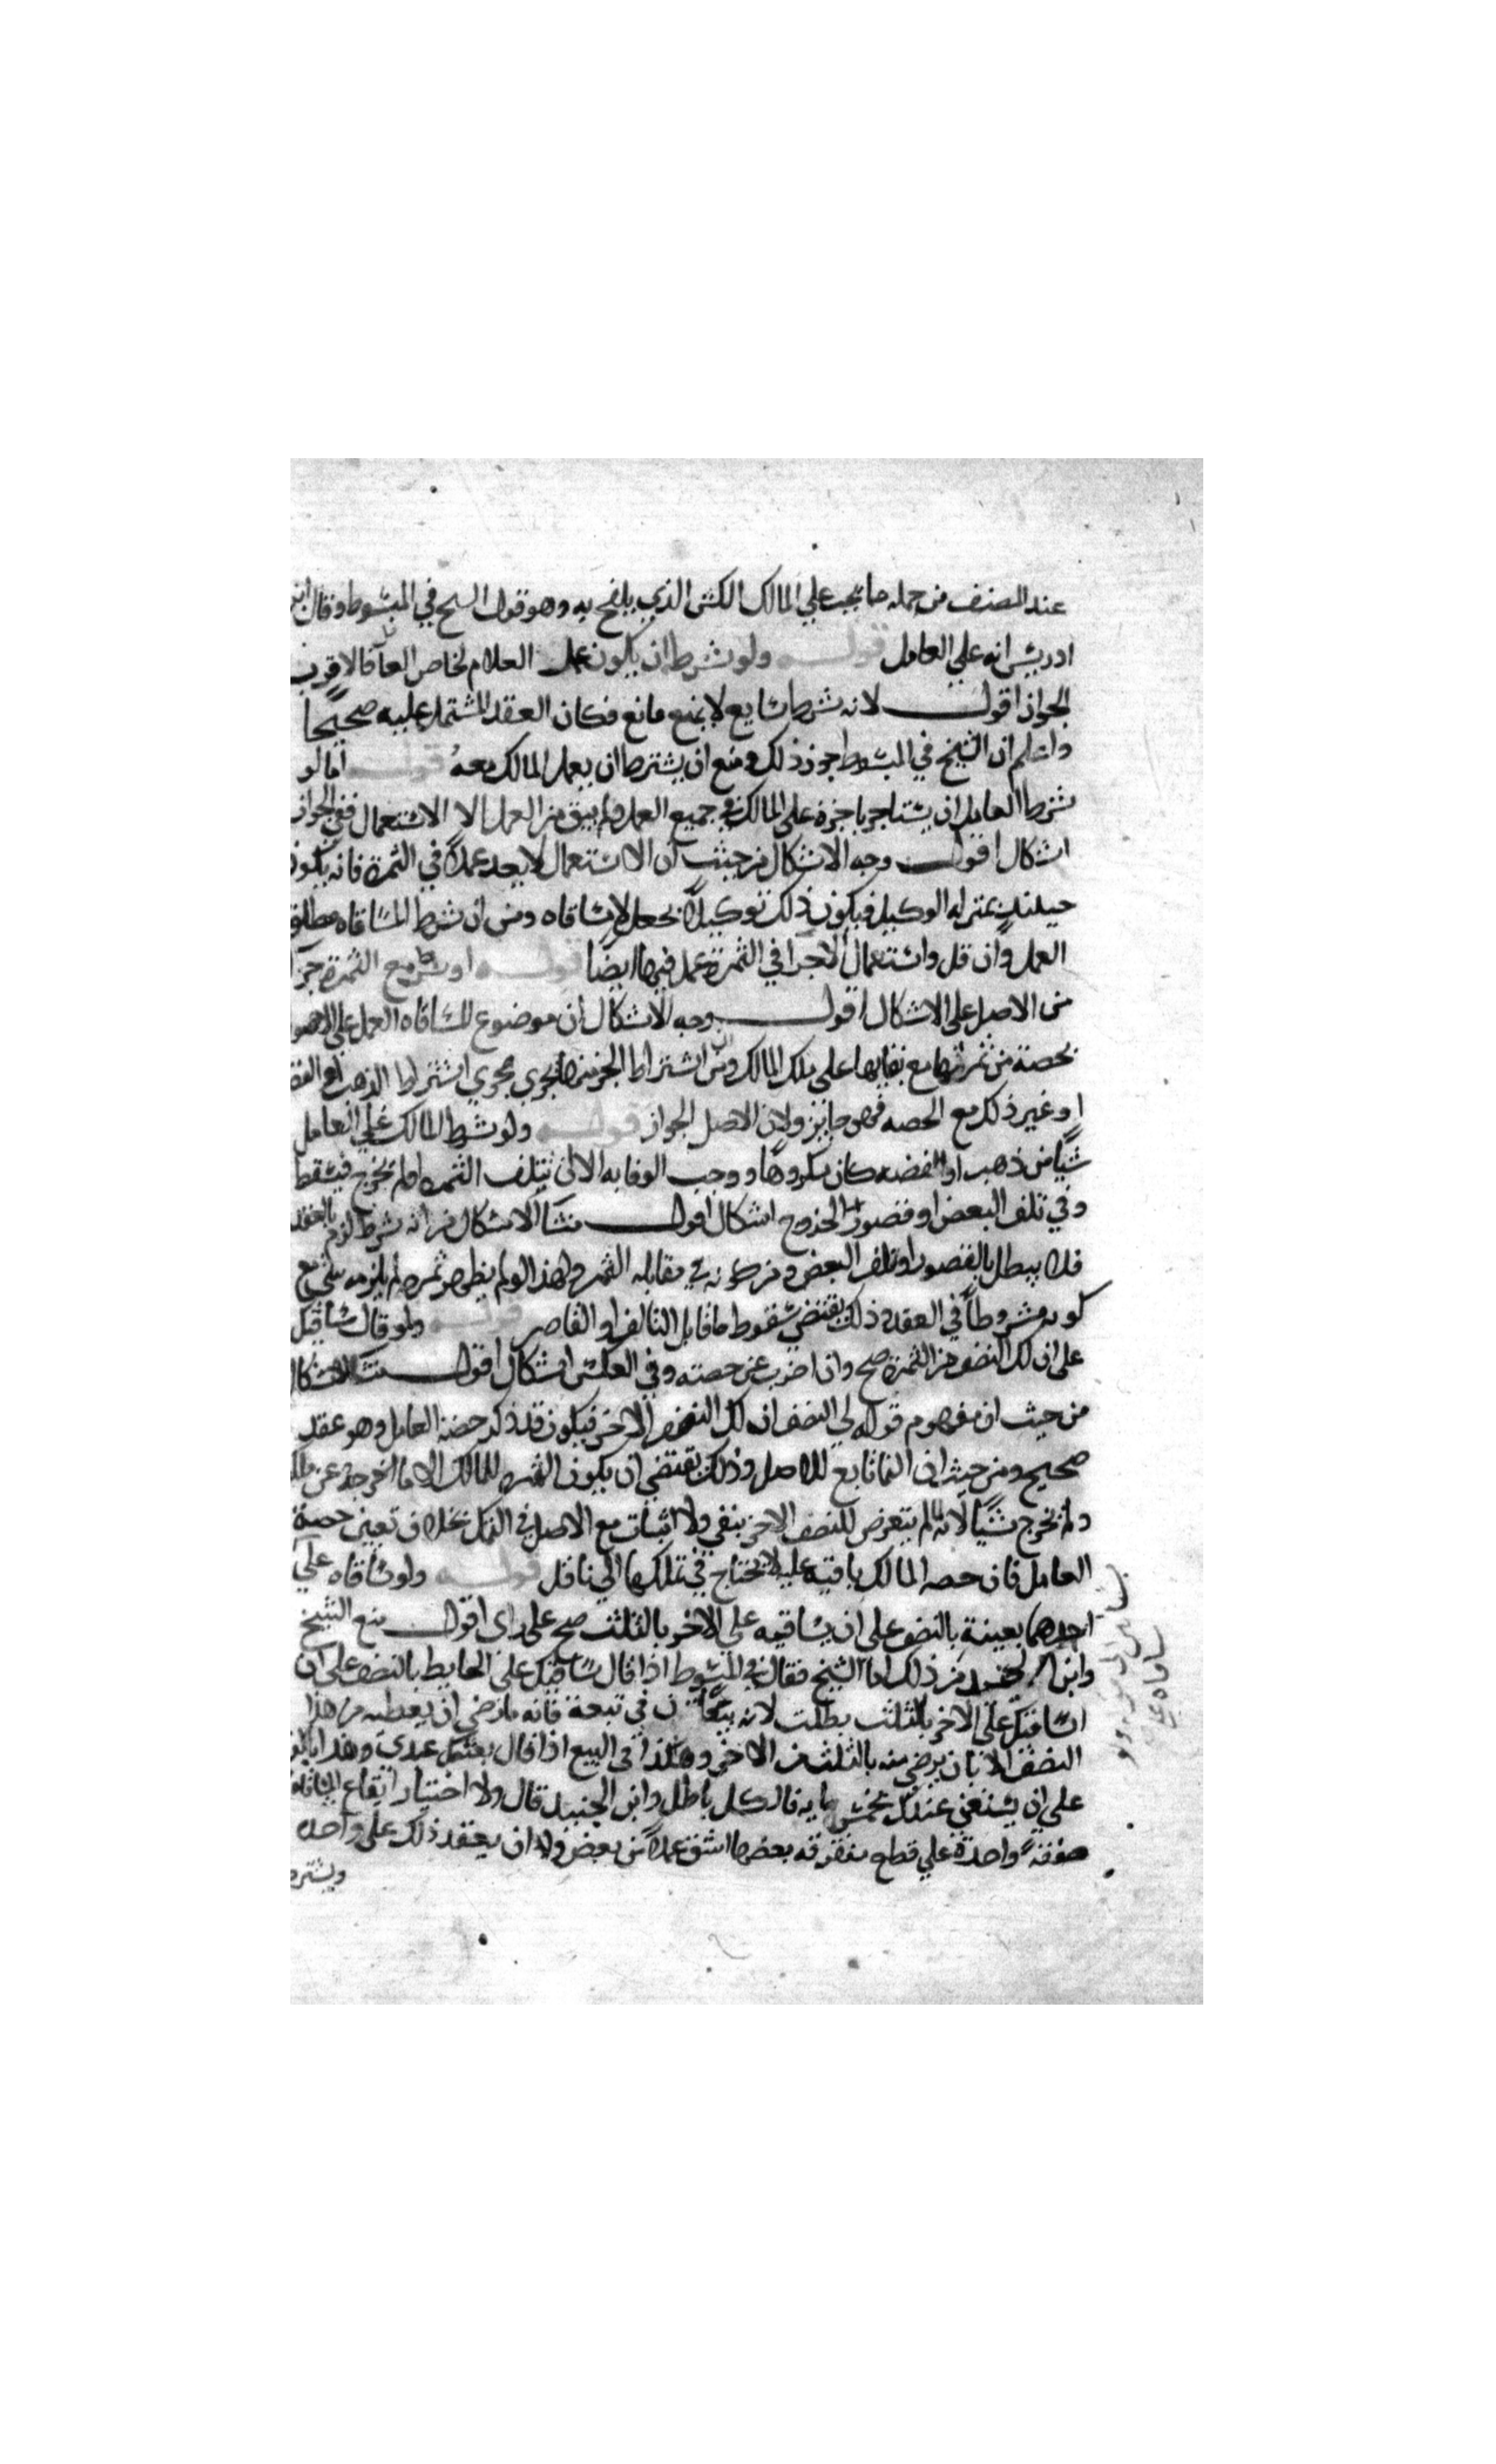 عند المصنف من جمله ما يجب علي المالك الكش الذي يلقح به وهو قول الشيخ في المبسوط وقال ابن
ادريس انه علي العامل قوله ولو شرط ان يكون عمل الغلام لخاص العامل فالاقرب
الجواز اقول لانه شرط شايع لا يمنع مانع فكان العقد المشتمل عليه صحيحا
واعلم ان الشيخ في المبسوط جوز ذلك ومنع ان يشترط ان يعمل المالك معه قوله اما لو
شرط العامل ان يستاجر باجرة علي المالك في جميع العمل ولم يبق من العمل الا الاستعمال ففي الجواز
اشكال اقول وجه الاشكال من حيث ان الاستعمال لا يعد عملا في الثمرة فانه يكون
حينئذ بمنزله الوكيل فيكون ذلك توكيلا بجعل لا مساقاه ومن ان شرط المساقاه مطلق
العمل وان قل واستعمال الاجرا في الثمرة عمل فيها ايضا قوله او شرط مع الثمرة جزا
من الاصل علي الاشكال اقول وجه الاشكال ان موضوع المساقاه العمل علي الاصول
بحصة من ثمرتها مع بقايها علي ملك المالك ومن ان اشتراط الجز منها يجري مجري اشتراط الذهب او الفضه
او غير ذلك مع الحصه فهو جايز ولان الاصل الجواز قوله ولو شرط المالك علي العامل
شيا من ذهب او الفضه كان مكروها ووجب الوفا به الا ان تتلف الثمره او لم تخرج فيسقط
وفي تلف البعض او قصور الخروج اشكال اقول منشا الاشكال من انه شرط لزم بالعقد
فلا يبطل بالقصور او تلف البعض ومن كونه في مقابله الثمره ولهذا لو لم يظهر ثمره لم يلزمه شي مع
كونه مشروطا في العقد وذلك يقتضي سقوط ما قابل التالف او القاصر قوله ولو قال ساقيتك
علي ان لك النصف من الثمرة صح وان اضرب عن حصته وفي العكس اشكال اقول منشا الاشكال
من حيث ان مفهوم قوله لي النصف ان لك النصف الاخر فيكون قد ذكر حصة العامل وهو عقد
صحيح ومن حيث ان النما تابع للاصل وذلك يقتضي ان يكون الثمره للمالك الا ما اخرجه عن ملكه
ولم يخرج شيا لانه لم يتعرض للنصف الاخر بنفي ولا اثبات مع الاصل في الكل بخلاف تعيين حصة
العامل فان حصه المالك باقيه عليه لا يحتاج في تملكها الي ناقل قوله ولو ساقاه علي
احدهما بعينه بالنصف علي ان يساقيه علي الاخر بالثلث صح علي راي اقول منع الشيخ
وابن الجنيد من ذلك اما الشيخ فقال في المبسوط اذا قال ساقيتك علي الحايط بالنصف علي ان
اساقيك علي الاخر بالثلث بطلت لانه في تبعة فانه ما رضي ان يعطيه من هذا
النصف الا بان يرضي منه بالثلث من الاخر وهكذا في البيع اذا قال بعتك عبدي هذا بالف
علي ان يبيعني عبدك بخمس مايه فالكل باطل وابن الجنيد قال ولا اختيار ايقاع المساقاه
صفقة واحدة علي قطع متفرقه بعضها اشق عملا من بعض ولا ان يعقد ذلك علي واحده
ويشترط